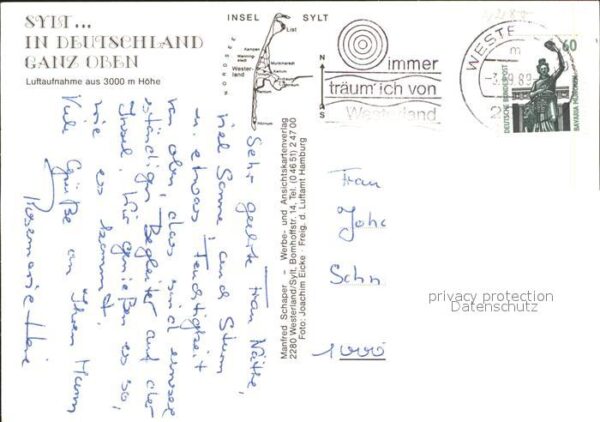 SYLT...
IN DEUTSCHLAND
GANZ OBEN
Luftaufnahme aus 3000 m Höhe
INSEL SYLT
List
Kampen
Wester-
land
Munkmarsch
Keitum
Hörnum
NORDSEE
N
S
immer
träum' ich von
Westerland
WESTE
m
-3. 9.89
2
60
DEUTSCHE BUNDESPOST
BAVARIA MÜNCHEN
Sehr geehrte Frau Näthe,
viel Sonne und Sturm
u. etwas Feuchtigkeit
von oben, das sind unsere
ständigen Begleiter auf der
Insel. Wir genießen es so,
wie es kommt.
Viele Grüße an Ihren Mann
Rosemarie
Manfred Schaper – Werbe- und Ansichtskartenverlag
2280 Westerland/Sylt, Bomhoffstr. 14, Tel. (0 46 51) 2 47 00
Foto: Joachim Eicke · Freig. d. Luftamt Hamburg
Frau
Joha
Schn
1000
privacy protection
Datenschutz